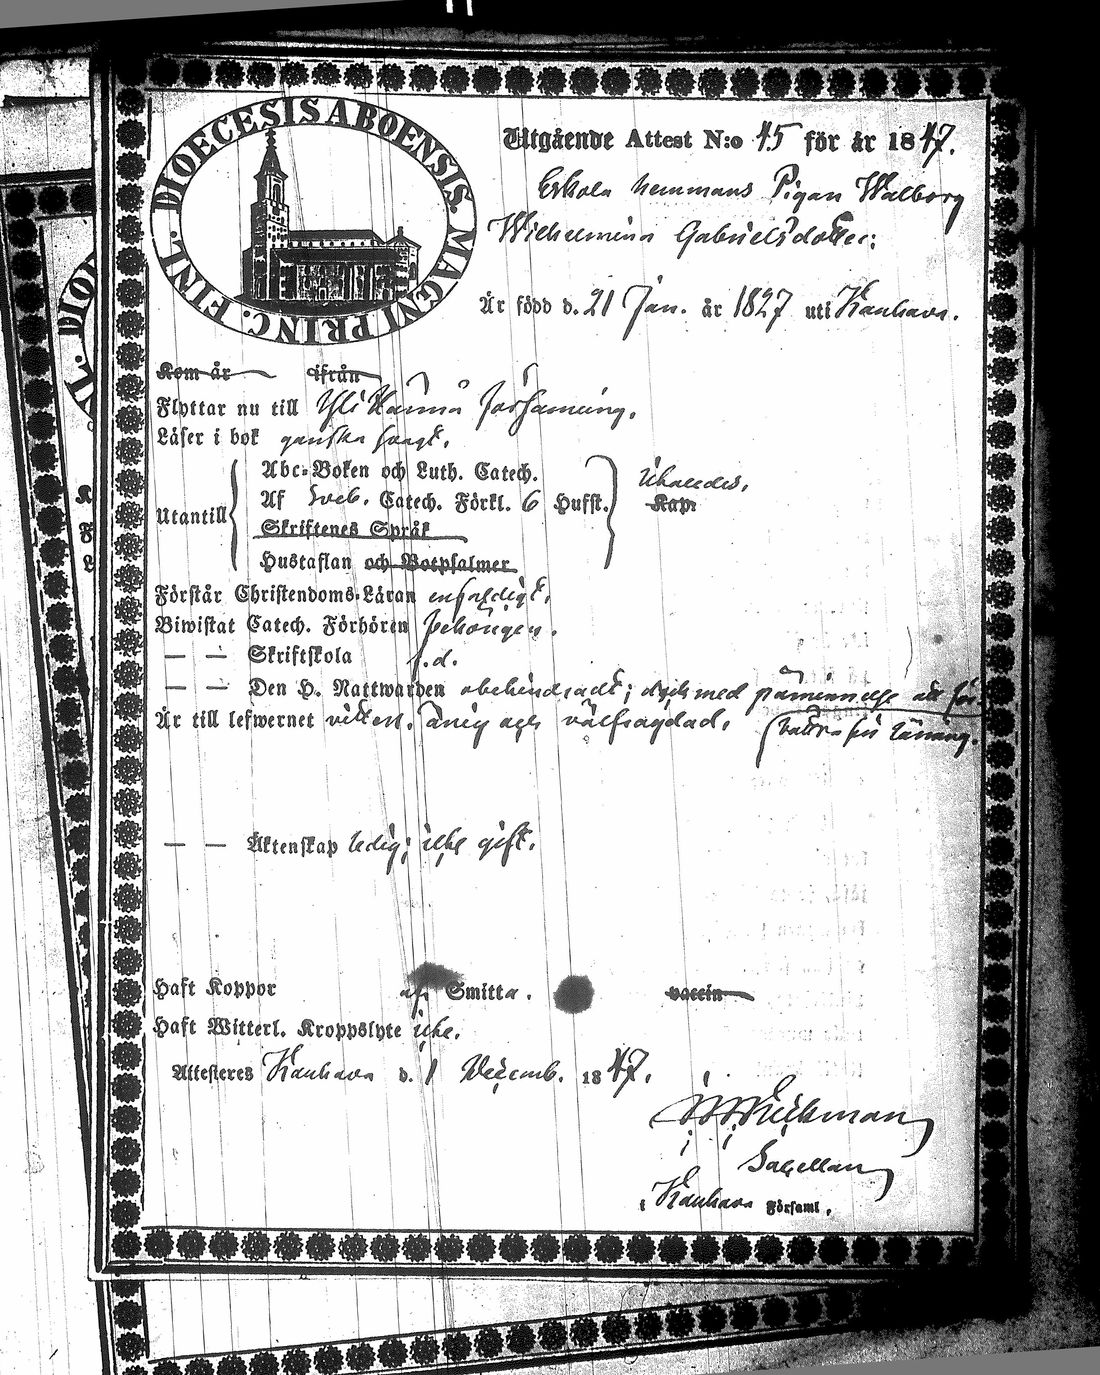 DIOECESIS ABOENSIS. MAGNI PRINC. FINL.
Utgående Attest N:o 45 för år 1847.
Eskola hemmans Pigan Walborg
Wilhelmina Gabrielsdotter;
Är född d. 21 Jan. år 1827 uti Kauhava.
Kom år ifrån
Flyttar nu till Yli Härmä församling.
Läser i bok ganska svagt.
Abc-Boken och Luth. Catech.
Utantill Af Sveb. Catech. Förkl. 6 Hufst. Kap.
Skriftenes Språk
Hustaflan och Botpsalmer
Förstår Christendoms-Läran enfaldigt.
Biwistat Catech. Förhören behörigen.
— — Skriftskola s.d.
— — Den H. Nattwarden obehindradt; dock med påminnelse att för-
Är till lefwernet ärlig och välfrägdad. bättra sin läsning.
— — Äktenskap ledig; icke gift.
Haft Koppor af Smitta. vaccin
Haft Witterl. Kroppslyte icke.
Attesteres Kauhava d. 1 Decemb. 1847.
Sacellan
i Kauhava Församl.